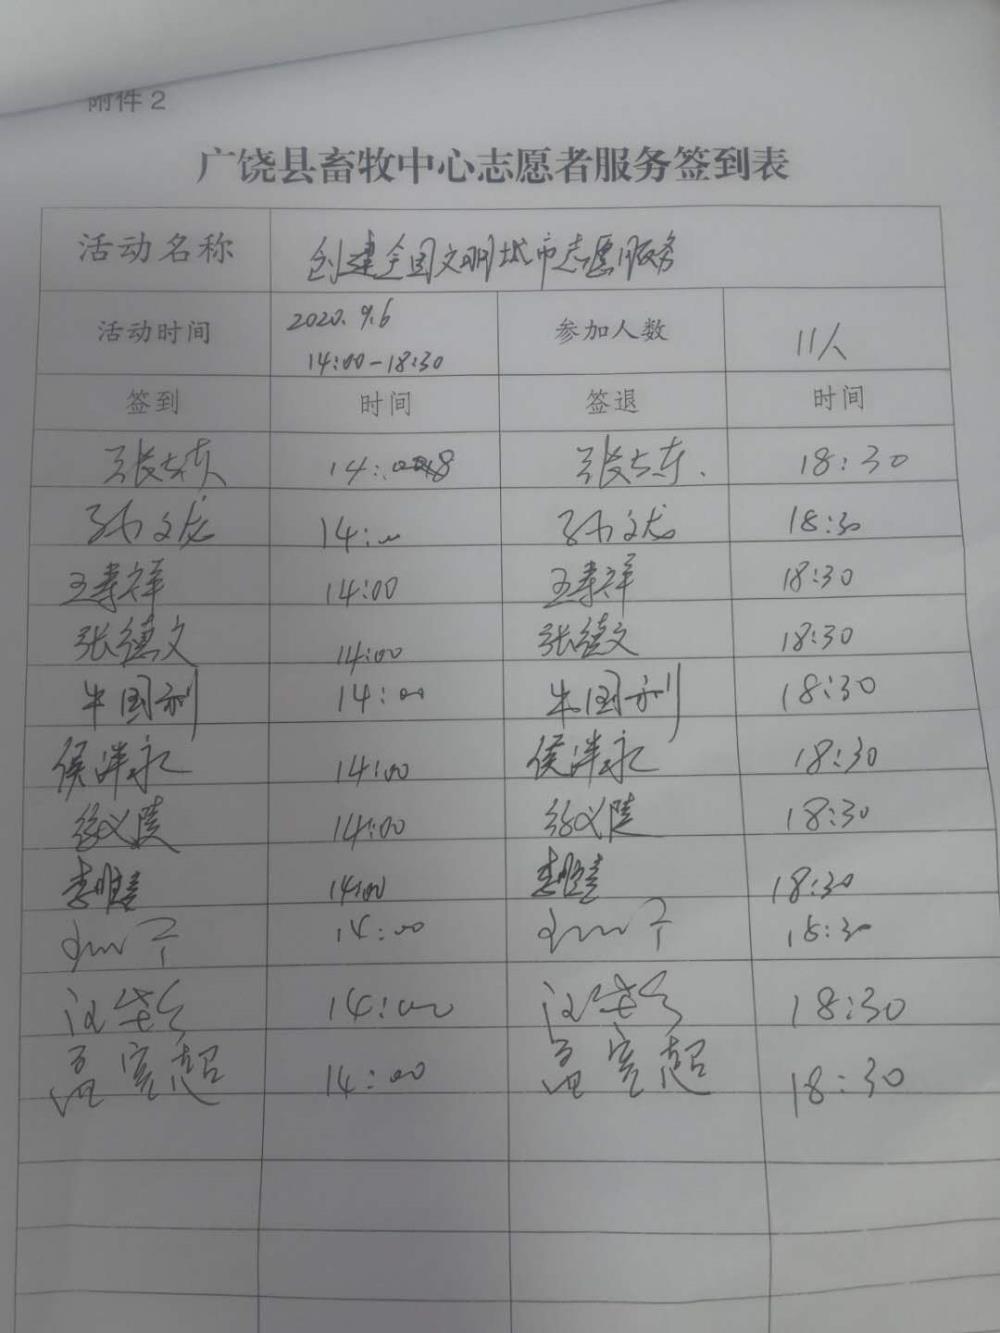 附件2
广饶县畜牧中心志愿者服务签到表
活动名称 创建全国文明城市志愿服务
活动时间 2020.9.6 14:00-18:30 参加人数 11人
签到 时间 签退 时间
张 东 14: 张 东 18:30
孙文龙 14:00 孙文龙 18:30
王寿祥 14:00 王寿祥 18:30
张德文 14:00 张德文 18:30
牛国利 14:00 牛国利 18:30
侯泮永 14:00 侯泮永 18:30
徐义陵 14:00 徐义陵 18:30
李 14:00 李 18:30
14:00 18:30
14:00 18:30
超 14:00 超 18:30